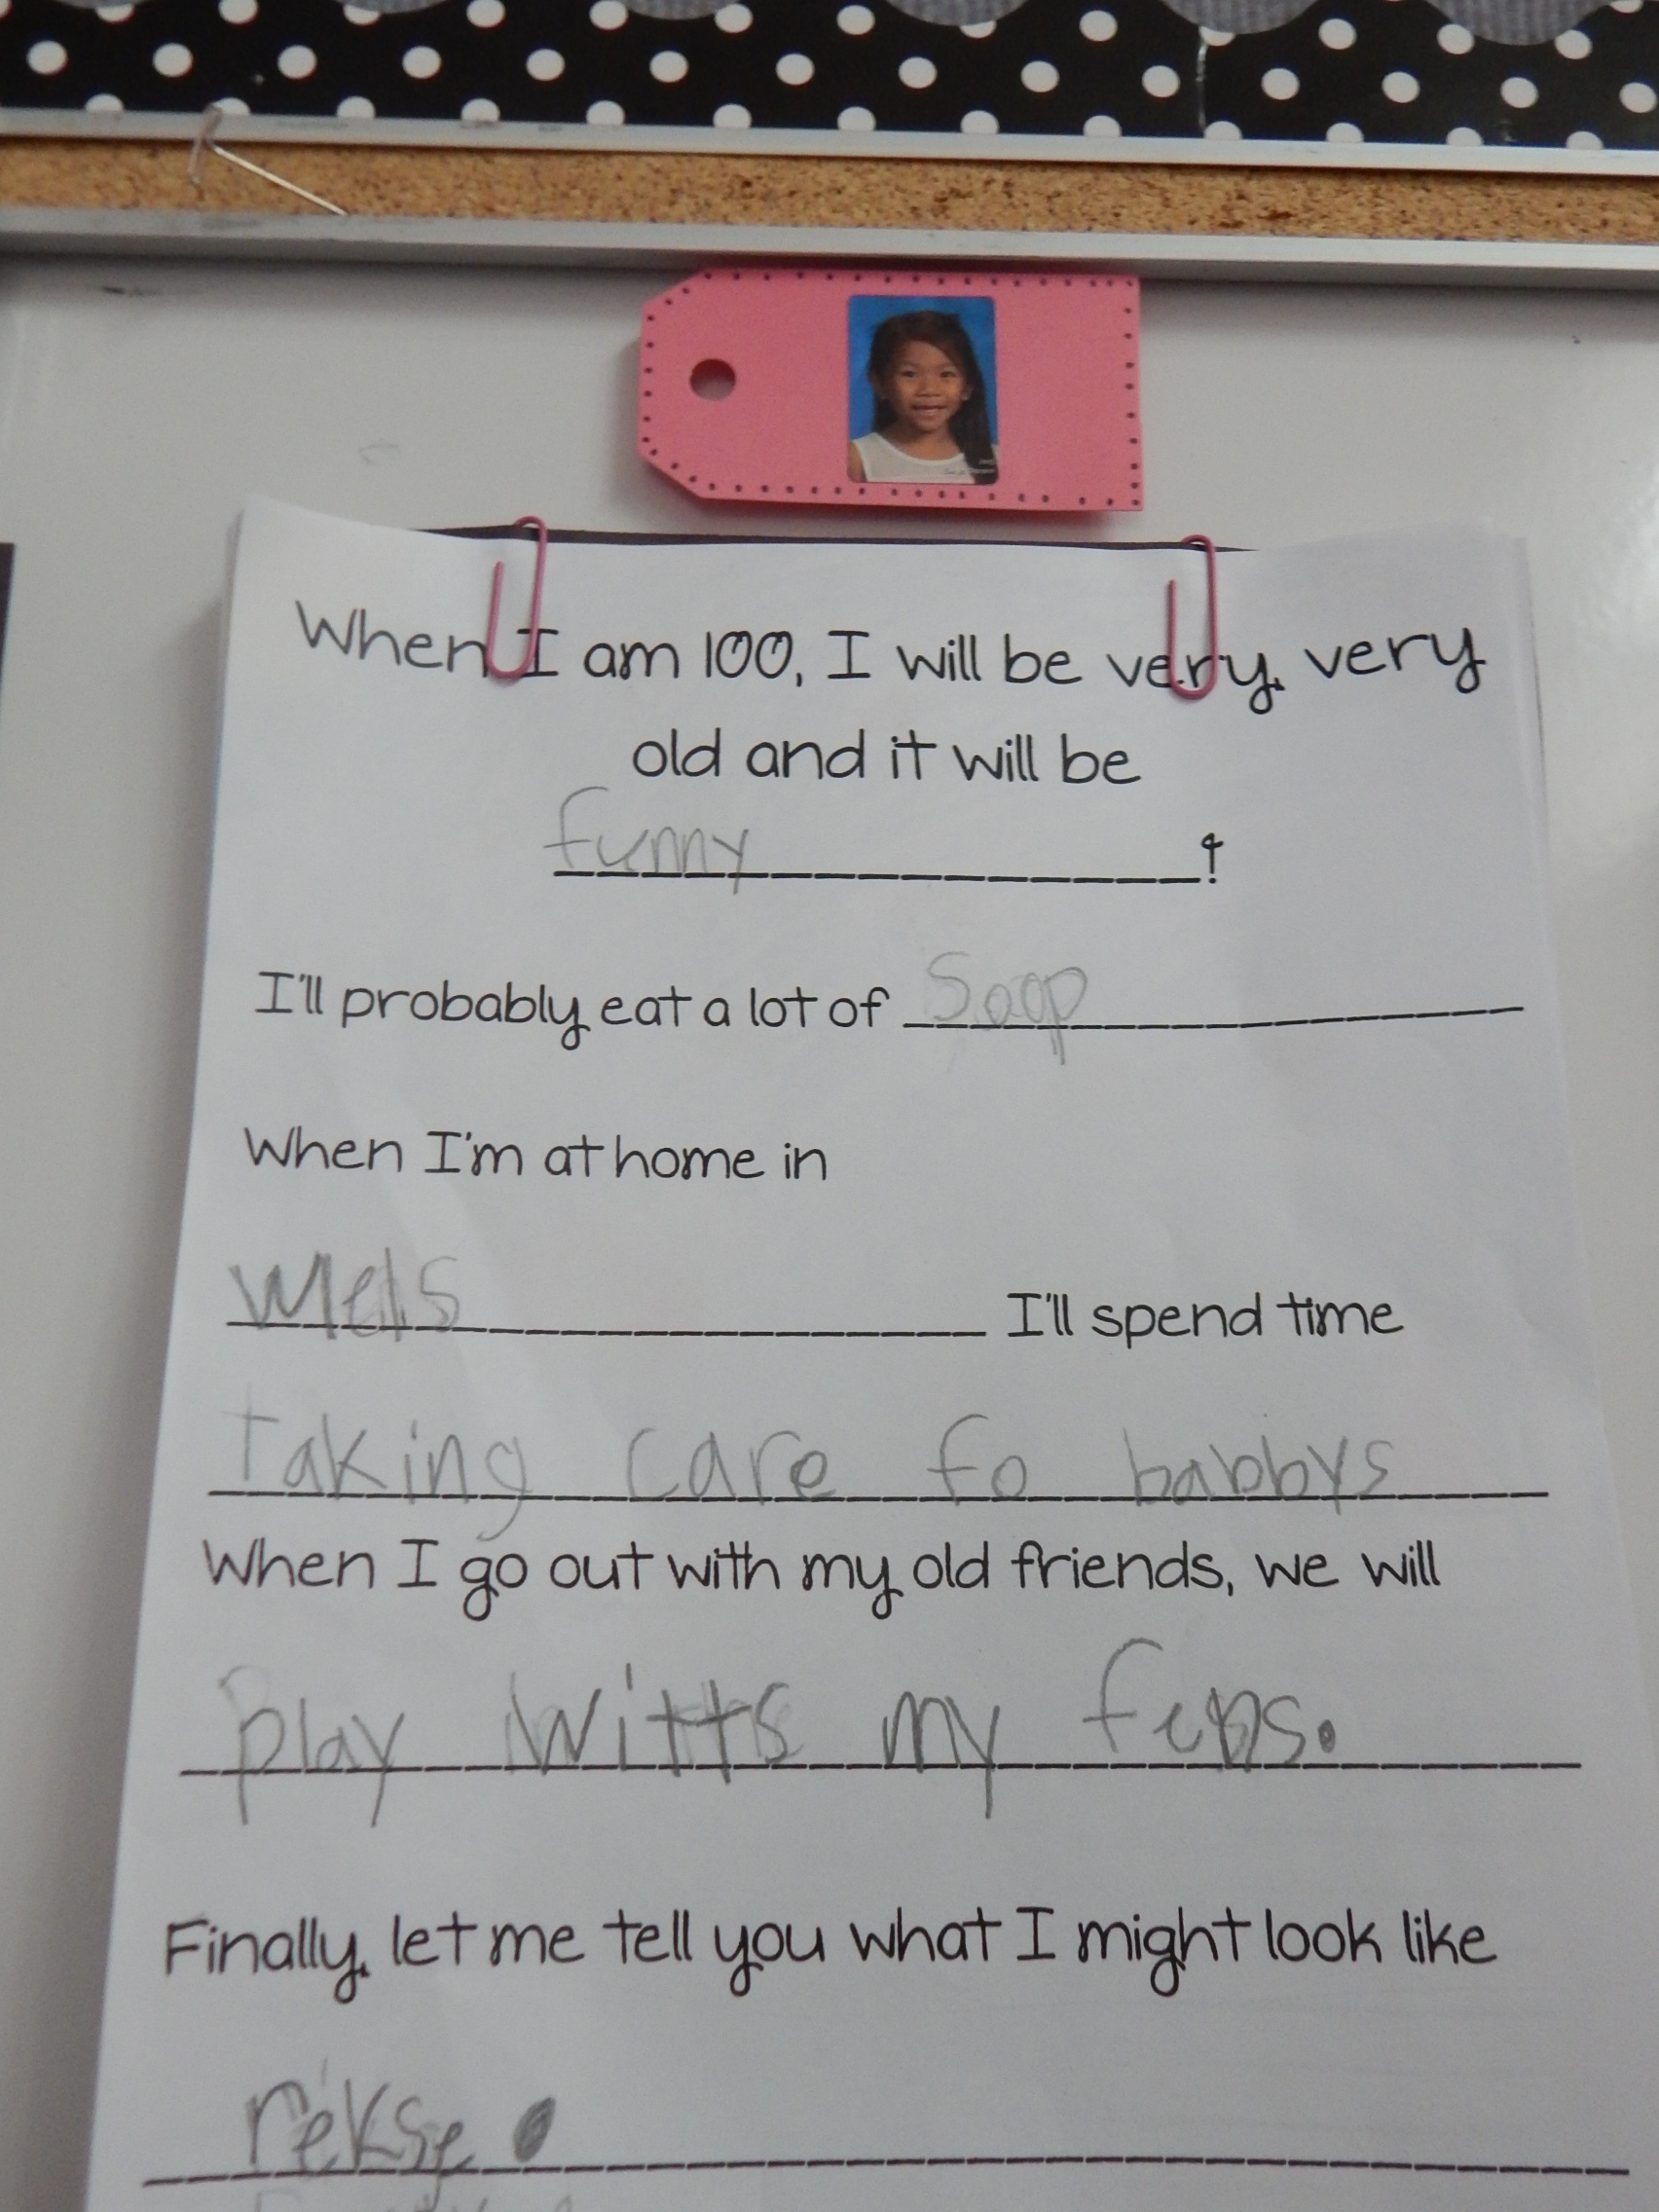 When I am 100, I will be very, very
old and it will be
funny!
I'll probably eat a lot of Soap
When I'm at home in
Wels I'll spend time
taking care fo babbys
When I go out with my old friends, we will
play witts my fens.
Finally, let me tell you what I might look like
rekse.